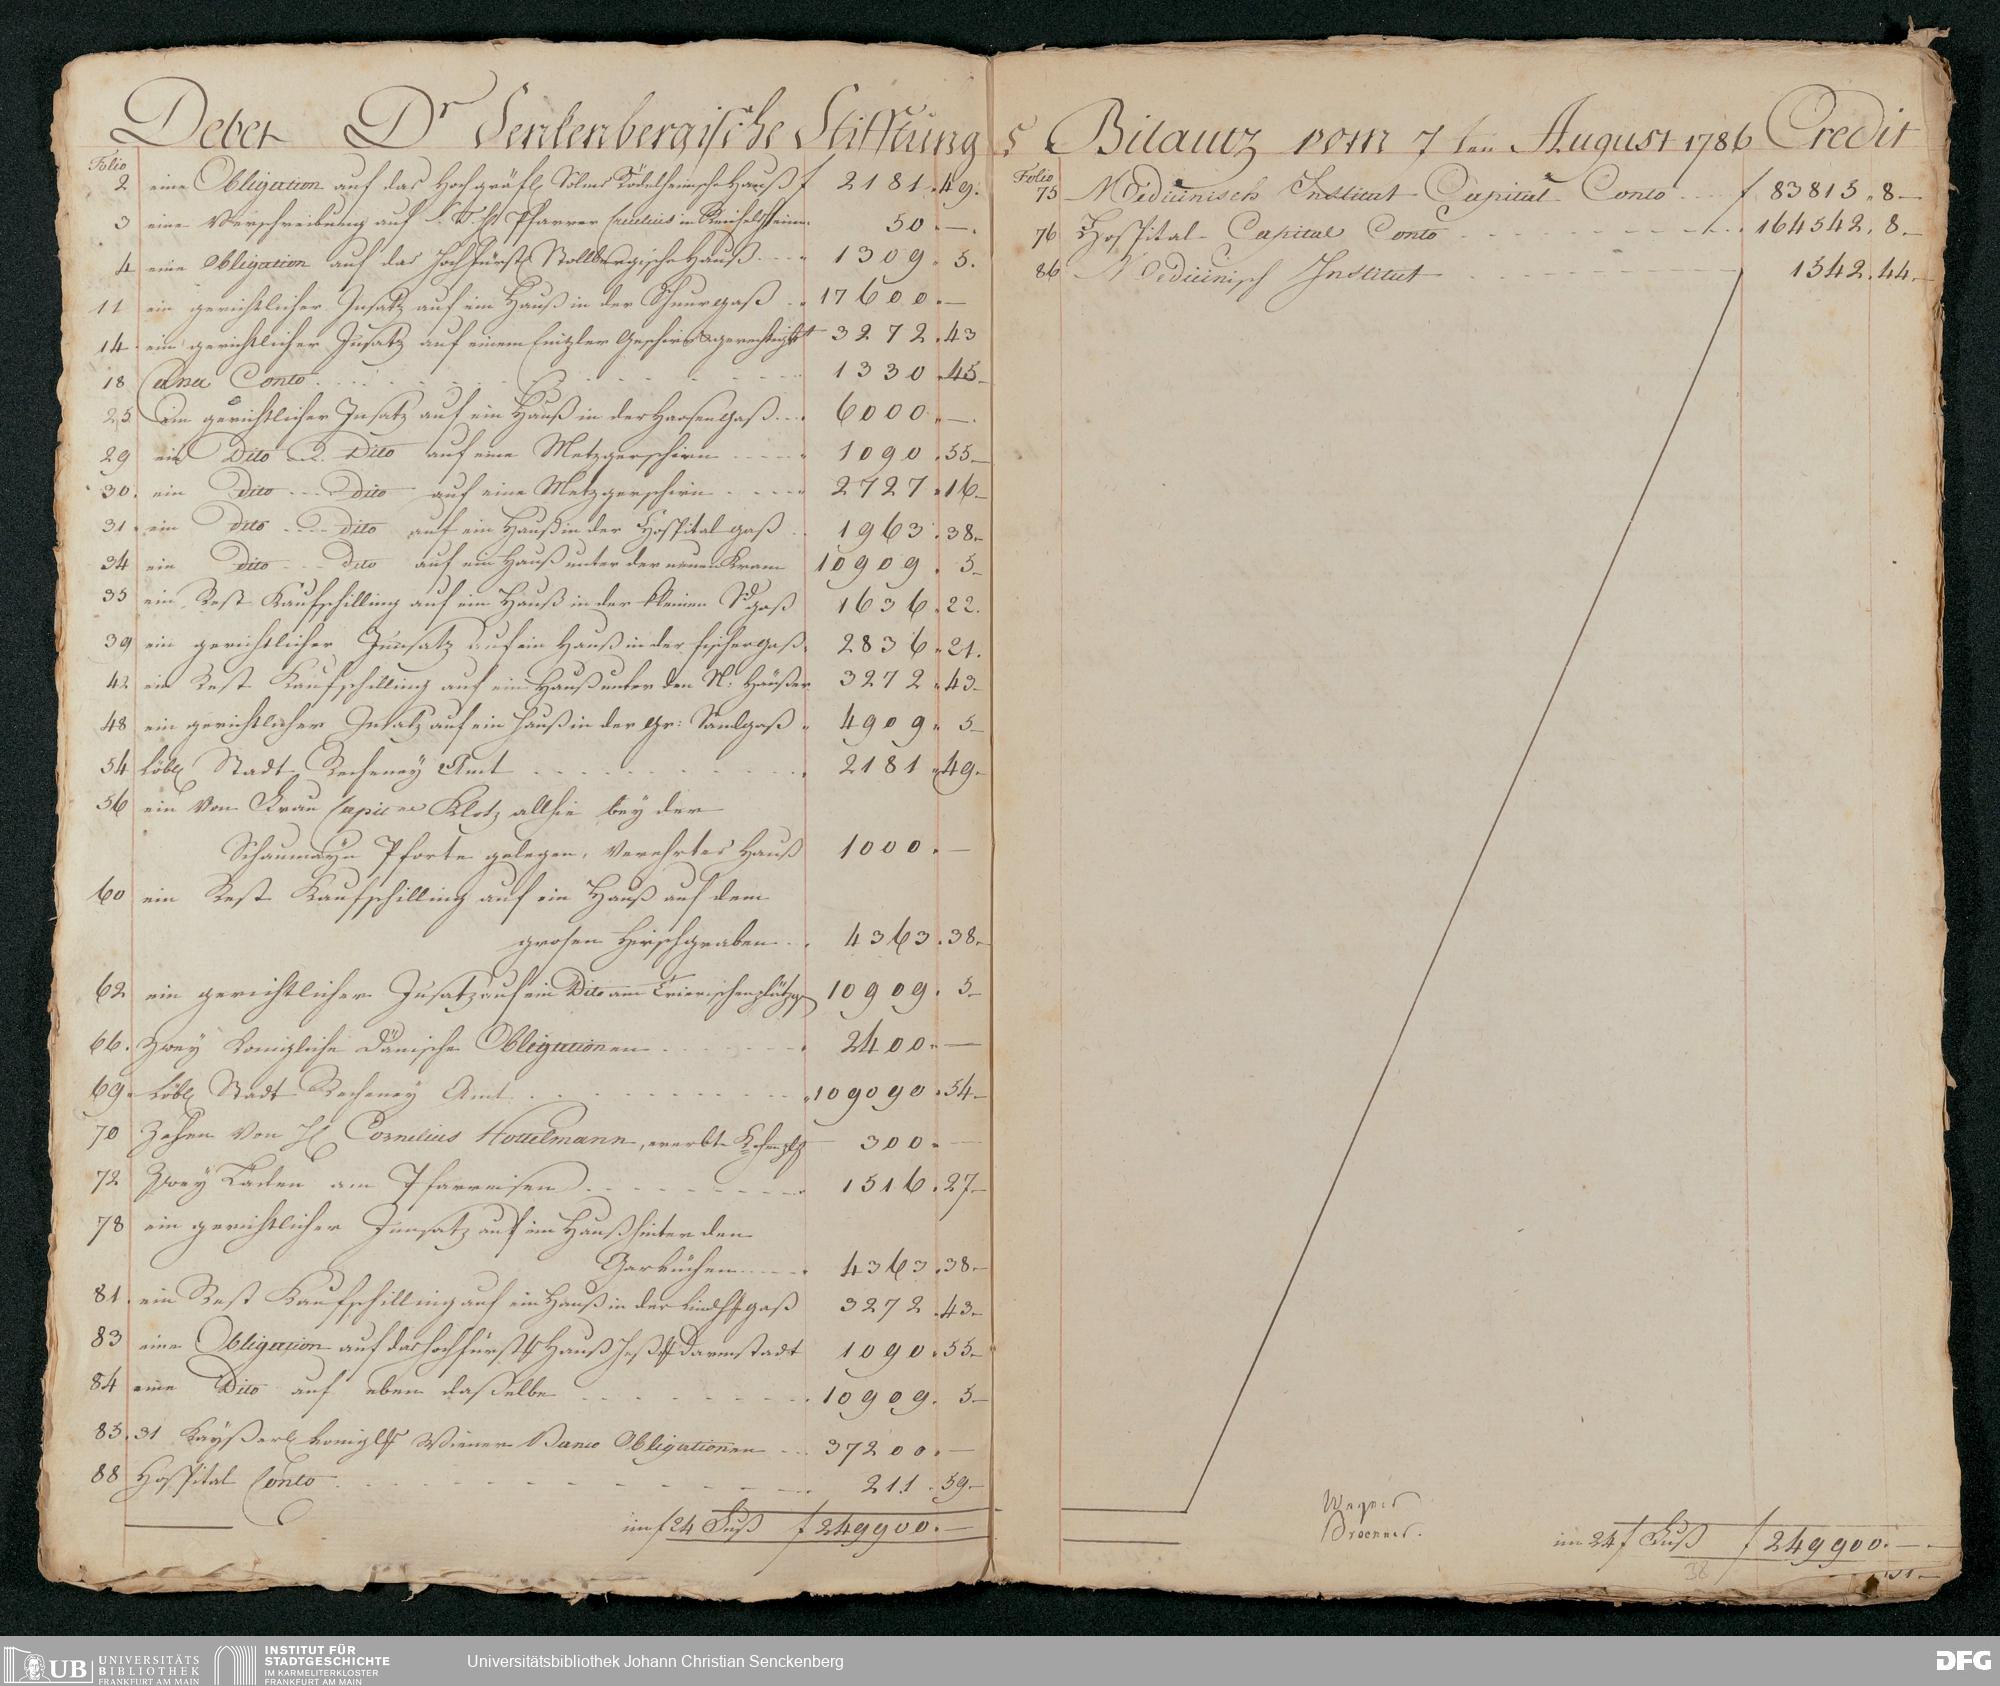 Debet Dr Senkenbergische Stifftung
Folio
2 eine Obligation auf das Hochgräfl. Solms Rödelheimische Hauß f 2181.49.
3 eine Verschreibung auf Pfarrer in Reichelsheim 50.—.
4 eine Obligation auf das Hochfürstl. Stollbergische Hauß 1309.5.
11 ein gerichtlicher Insatz auf ein Hauß in der Schnurgaß 17600.—
14 ein gerichtlicher Insatz auf einem 3272.43
18 Cassa Conto 1330.45
25 Ein gerichtlicher Insatz auf ein Hauß in der Haasengaß 6000.—.
29 ein Dito Dito auf eine Metzgerschirn 1090.55
30. ein Dito Dito auf eine Metzgerschirn 2727.16
31. ein Dito Dito auf ein Hauß in der Hospital gaß 1963.38
34 ein Dito Dito auf ein Hauß unter der neuen Kram 10909.5
35 ein Rest Kaufschilling auf ein Hauß in der kleinen gaß 1636.22.
39 ein gerichtlicher Innsatz auf ein Hauß in der Fischergaß 2836.21.
42 ein Rest Kaufschilling auf ein Hauß unter den N: Häußer 3272.43
48 ein gerichtlicher Insatz auf ein Hauß in der Gr: Sandgaß 4909.5
54 Löbl. Stadt Recheney Amt 2181.49
56 ein von Frau Klotz allhie bey der
Schaumayn Pforte gelegen, verehrtes Hauß 1000.—
60 ein Rest Kaufschilling auf ein Hauß auf dem
grosen Hirschgraben 4363.38
62 ein gerichtlicher Insatz auf ein Dito am Trierischen plätzg 10909.5
66. Zwey Königliche Dänische Obligationen 2400.—
69. Löbl. Stadt Recheney Amt 109090.54
70 Zehen von H. Cornelius Hottelmann, ererbte 300.—
72 Zwey Läden am Pfarreisen 1516.27
78 ein gerichtlicher Innsatz auf ein Hauß hinter den
Garküchen 4363.38
81. ein Rest Kaufschilling auf ein Hauß in der gaß 3272.43
83 eine Obligation auf das Hochfürstl. Hauß Heß. Darmstadt 1090.55
84 eine Dito auf eben daßelbe 10909.5
85. 31 Kayßerl. Königl. Wiener Banco Obligationen 37200.—
88 Hospital Conto 211.59
im f 24 Fuß f 249900.—
s Bilantz vom 7ten August 1786 Credit
Folio
75 Medicinisch Institut Capital Conto f 83815.8
76 Hospital Capital Conto 164542.8.
86 Medicinisch Institut 1542.44
Wegner
Broenner.
im 24 f Fuß f 249900.—
38
UB UNIVERSITÄTS
BIBLIOTHEK
FRANKFURT AM MAIN
INSTITUT FÜR
STADTGESCHICHTE
IM KARMELITERKLOSTER
FRANKFURT AM MAIN
Universitätsbibliothek Johann Christian Senckenberg
DFG